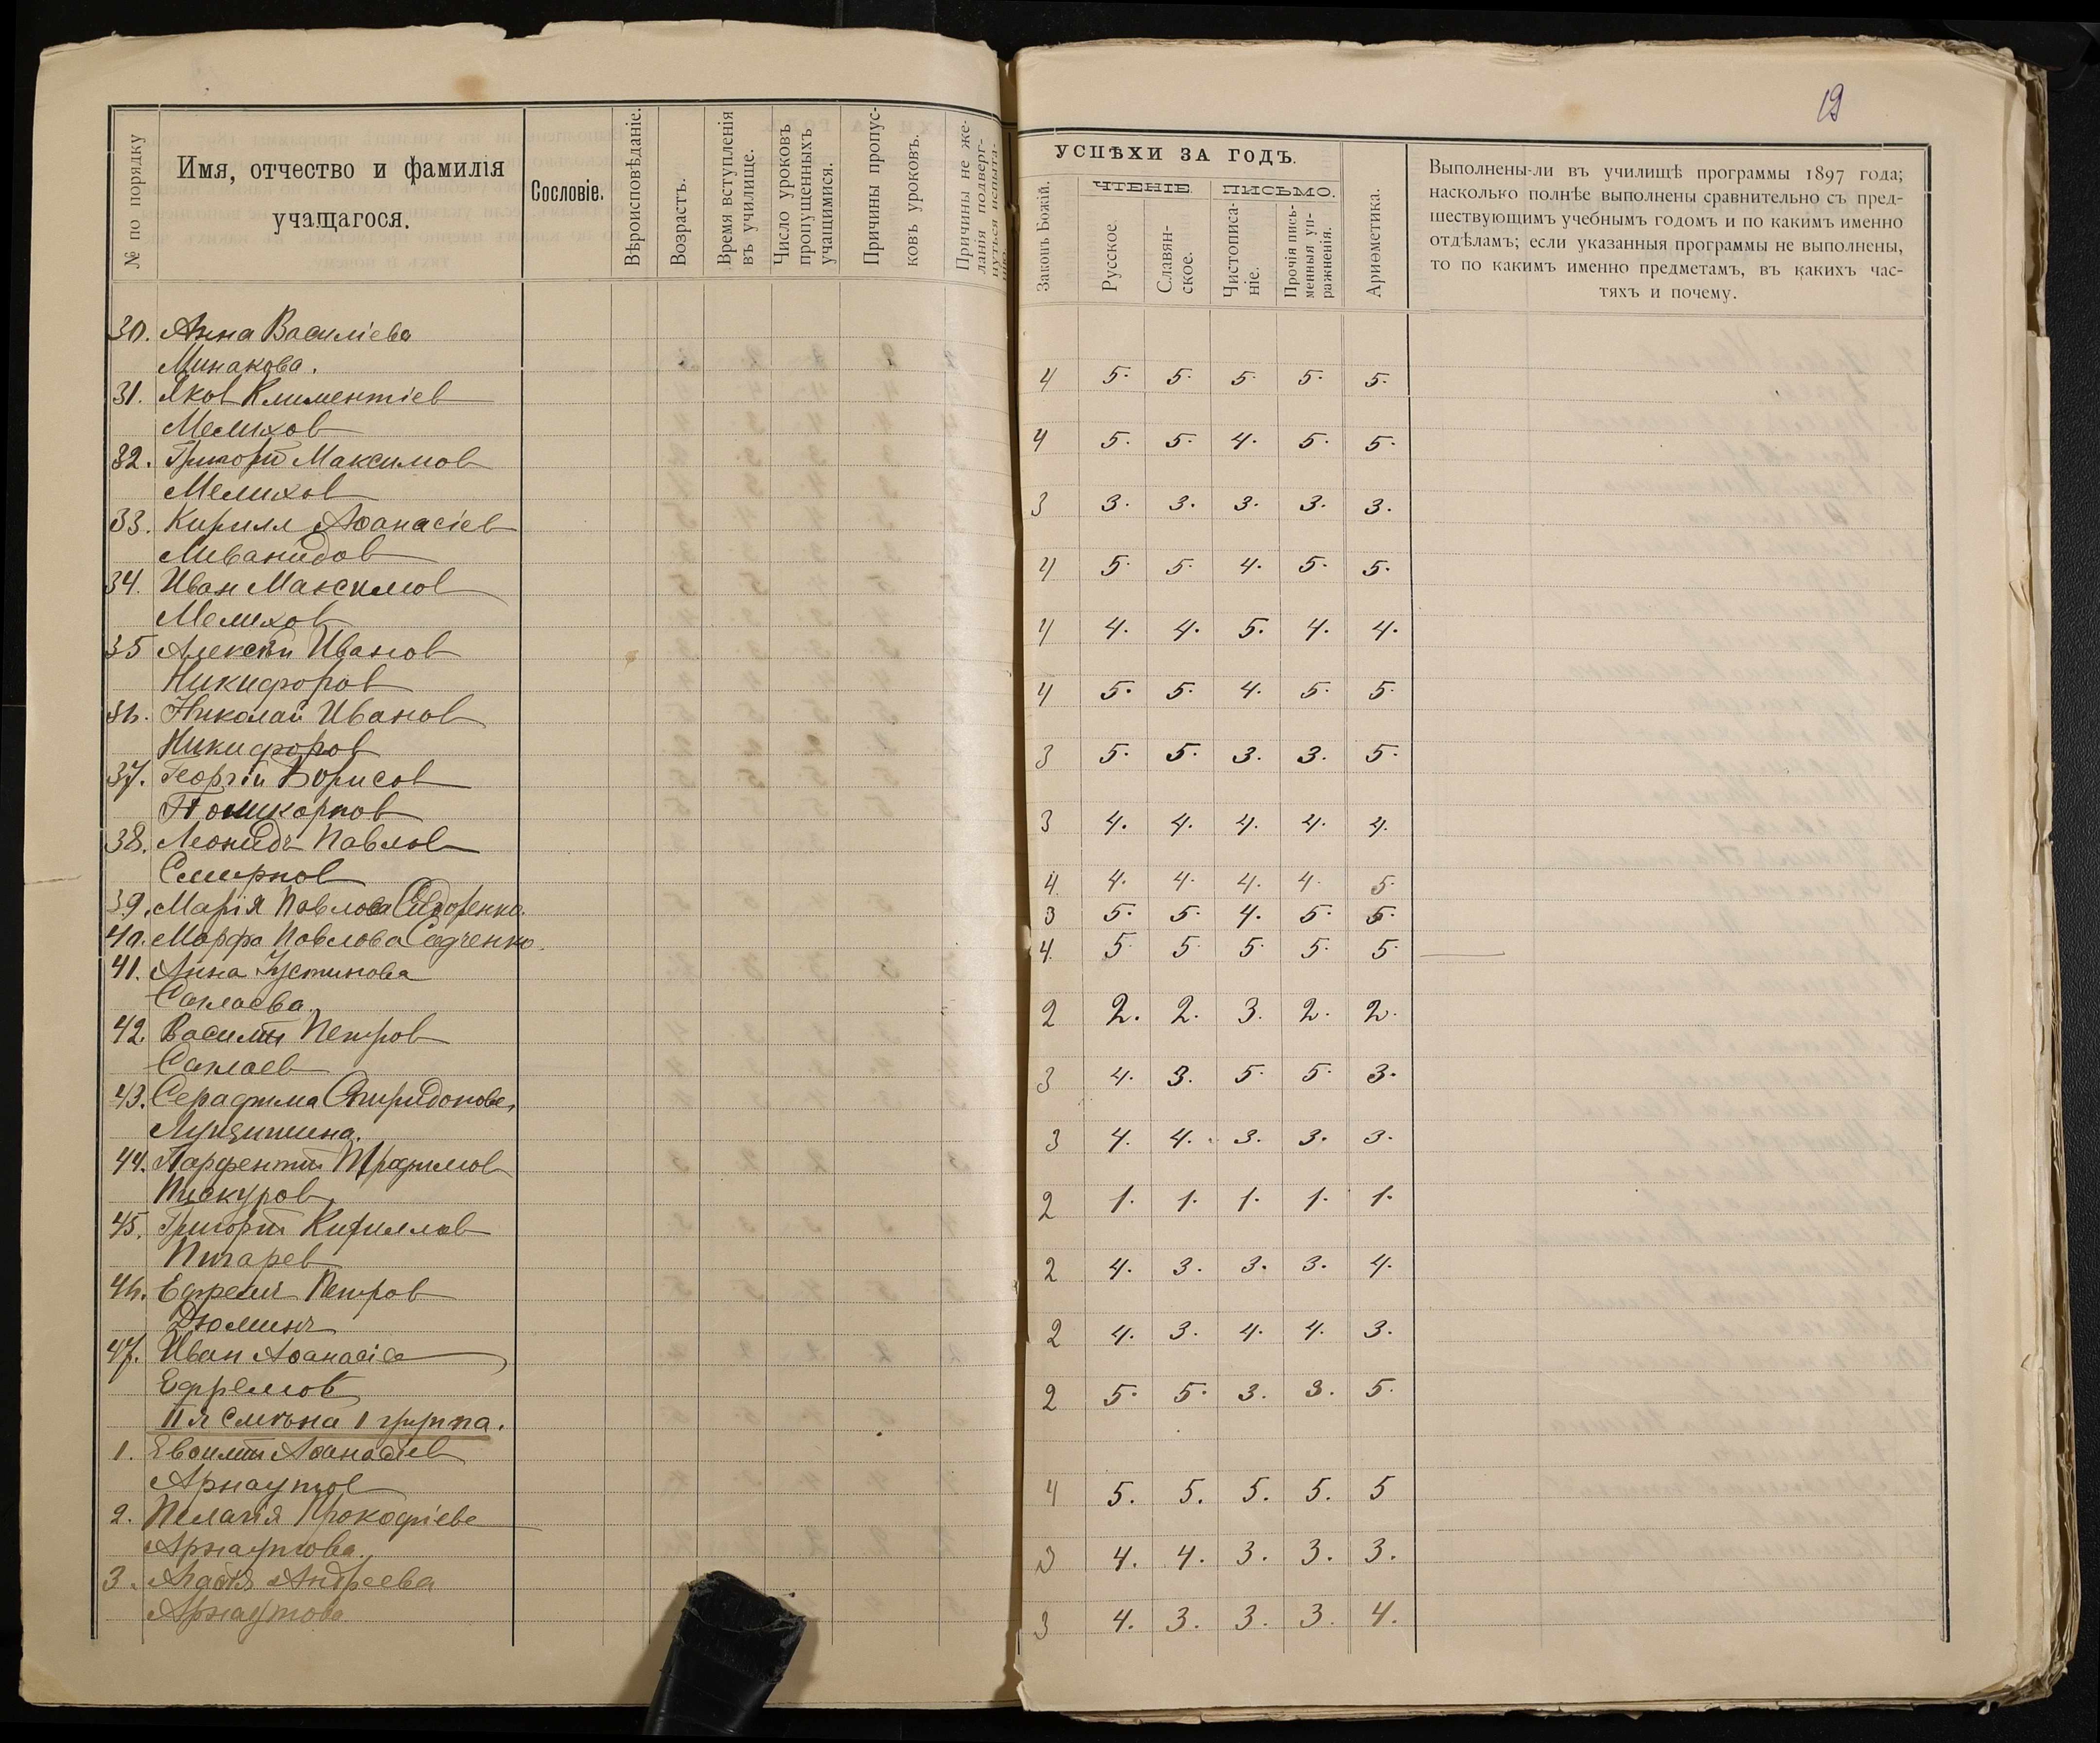 19
№ по порядку
Имя, отчество и фамилія
учащагося.
Сословіе.
Вѣроисповѣданіе.
Возрастъ.
Время вступленія
въ училище.
Число уроковъ
пропущенныхъ
учащимися.
Причины пропус-
ковъ уроковъ.
Причины не же-
ланія подверг-
нуться испыта-
УСПѢХИ ЗА ГОДЪ.
Законъ Божій.
ЧТЕНІЕ.
Русское.
Славян-
ское.
ПИСЬМО.
Чистописа-
ніе.
Прочія пись-
менныя уп-
ражненія.
Ариѳметика.
Выполнены-ли въ училищѣ программы 1897 года;
насколько полнѣе выполнены сравнительно съ пред-
шествующимъ учебнымъ годомъ и по какимъ именно
отдѣламъ; если указанныя программы не выполнены,
то по какимъ именно предметамъ, въ какихъ час-
тяхъ и почему.
30. Анна Василіева
Минакова. 4 5. 5. 5. 5. 5.
31. Яков Климентіев
Мелихов 4 5. 5. 4. 5. 5.
32. Григорій Максимов
Мелихов 3 3. 3. 3. 3. 3.
33. Кирилл Аѳанасіев
4 5. 5. 4. 5. 5.
34. Иван Максимов
Мелихов 4 4. 4. 5. 4. 4.
35 Алексѣй Иванов
Никифоров 4 5. 5. 4. 5. 5.
36. Николай Иванов
Никифоров 3 5. 5. 3. 3. 5.
37. Георгій Борисов
Поликарпов 3 4. 4. 4. 4. 4.
38. Леонидъ Павлов
Смирнов 4. 4. 4. 4. 4. 5.
39. Марія Павлова Сидоренко. 3 5. 5. 4. 5. 5.
40. Марфа Павлова 4. 5. 5. 5. 5. 5.
41. Анна Устинова
Саклаева. 2 2. 2. 3. 2. 2.
42. Василій Петров
Саклаев 3 4. 3. 5. 5. 3.
43. Серафима Спиридонова
3 4. 4. 3. 3. 3.
44. Парфентій Трофимов
Пискуров 2 1. 1. 1. 1. 1.
45. Григорій Кириллов
Пигарев 2 4. 3. 3. 3. 4.
46. Ефремъ Петров
Дюминъ 2 4. 3. 4. 4. 3.
47. Иван Аѳанасіев
Ефремов 2 5. 5. 3. 3. 5.
II я смѣна I группа.
1. Аѳанасіев
Арнаутов 4 5. 5. 5. 5. 5
2. Пелагія Прокофіева
Арнаутова. 3 4. 4. 3. 3. 3.
3. Андреева
Арнаутова 3 4. 3. 3. 3. 4.